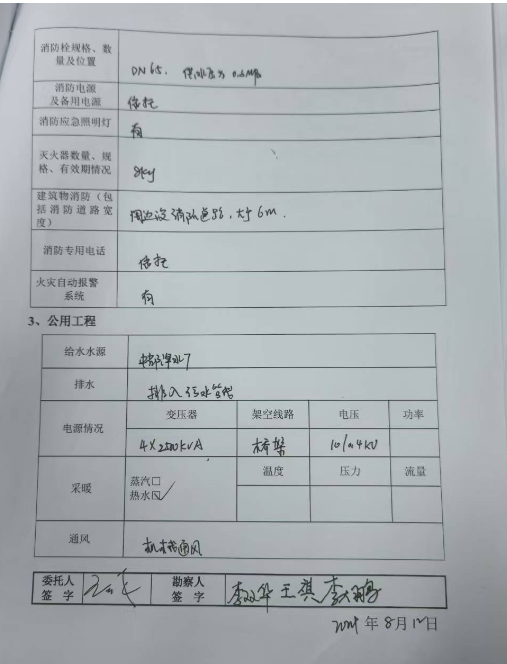 消防栓规格、数
量及位置
DN 65. 供水压为 0.6MPa
消防电源
及备用电源
依托
消防应急照明灯
有
灭火器数量、规
格、有效期情况
8kg
建筑物消防（包
括消防道路宽
度）
周边设消防道路，大于6m.
消防专用电话
依托
火灾自动报警
系统
有
3、公用工程
给水水源
排水
排入污水管
电源情况
变压器
架空线路
电压
功率
4×2500kVA
桥架
10/0.4kV
采暖
蒸汽□
热水☑
温度
压力
流量
通风
机械通风
委托人
签 字
勘察人
签 字
李双华 王祺 李大鹏
年 8 月 日